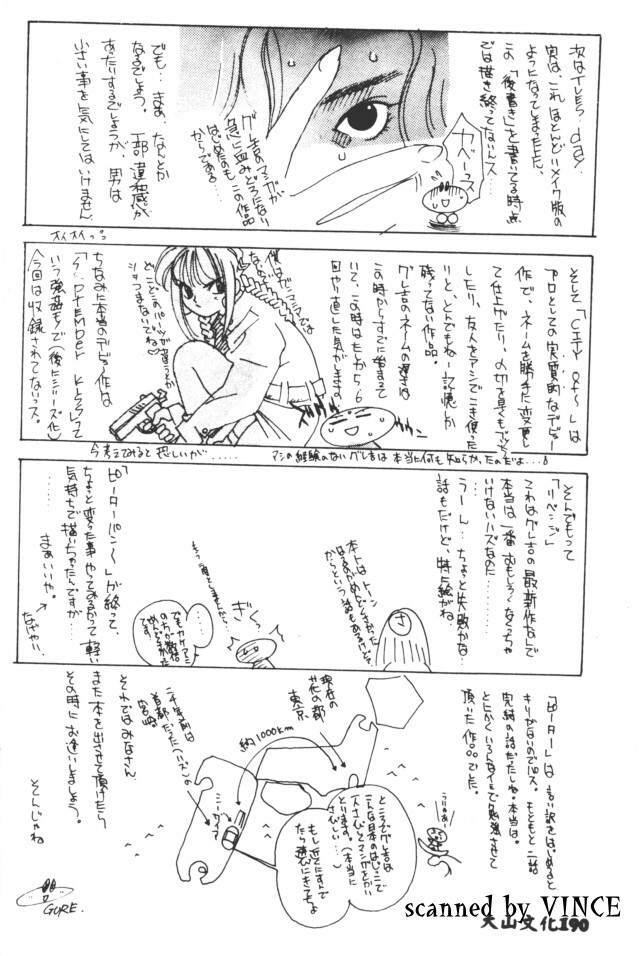 次はTLES day
実は、これほとんどリメイク版の
ようになってしまった上に、
この「後書き」を書いてる時点
では描き終ってないんス…
カベーっス
グレ吉のマンガが
急に血みどろになり
はじめたのも、この作品
からである…
でも…まぁ、なんとか
なるでしょう。一部違和感が
あたりするでしょうが、男は
小さい事を気にしてはいけません
そして「CITY OF〜」は
プロとしての実質的なデビュー
作で、ネームを勝手に変更し
て仕上げたり、〆切を見もアップ
したり、友人をアシでこき使った
りと、とんでもねー記憶が
残ってない作品。
グレ吉のネームの遅さは
この時からすでに始まってて
この時はたしか5、6
回やり直した気がします。
僕はガンマニアでは
ないので、
どこどこのパーツが違うとか
ちなみに本当のデビュー作は
今回は収録されてないっス。
今考えてみると恐しいが……
アシの経験のないグレ吉は本当に何も知らなかったのだよ…
そんでもって
「リベンジ」
これはグレ吉の最新作なんで
本当は一番おもしろくなくっちゃ
いけないハズなのに……
うーん…ちょっと失敗かな…
話もだけど、特に絵がね
さ
本トはトーン
はるのがめんどくさかった
からという話もあるけど…
ぎくっ
もう二度としませんから
……
でもカケアミ
の方が数段
めんどくさかった
です。
「ピーターパン〜」が終って、
ちょっと変った事やってみるかって軽い
気持ちで描いちゃったんですが…
………
まぁいいや。
なげやり。
「ピーター」は言い訳をはじめると
キリがないのでパス。もともと一話
完結の話だったしね。本当は。
とにかくいろんなイミで勉強させて
頂いた作品でした。
現在の
花の都
東京
約1000km
二千年前は
首都だった(ハズ)の
宮崎
ところでグレ吉は
こんな日本のはじっこで
一人さびしくマンガをかい
とります。(本当に
さびしい…)
もし近くにすんで
たら遊びにきてちょ
それではみなさん
また本を出させて頂けたら
その時にお逢いしましょう。
そんじゃね
GURE.
scanned by VINCE
大山文化190